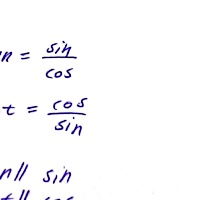 n = sin/cos
t = cos/sin
n// sin
t// cos